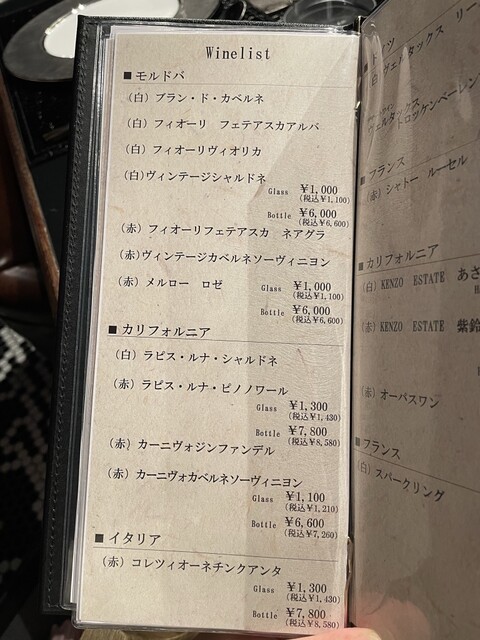 Winelist
■モルドバ
(白) ブラン・ド・カベルネ
(白) フィオーリ フェテアスカアルバ
(白) フィオーリヴィオリカ
(白)ヴィンテージシャルドネ
Glass ￥1,000
(税込￥1,100)
Bottle ￥6,000
(税込￥6,600)
(赤) フィオーリフェテアスカ ネアグラ
(赤)ヴィンテージカベルネソーヴィニヨン
(赤) メルロー ロゼ
Glass ￥1,000
(税込￥1,100)
Bottle ￥6,000
(税込￥6,600)
■カリフォルニア
(白) ラピス・ルナ・シャルドネ
(赤) ラピス・ルナ・ピノノワール
Glass ￥1,300
(税込￥1,430)
Bottle ￥7,800
(税込￥8,580)
(赤) カーニヴォジンファンデル
(赤) カーニヴォカベルネソーヴィニヨン
Glass ￥1,100
(税込￥1,210)
Bottle ￥6,600
(税込￥7,260)
■イタリア
(赤) コレツィオーネチンクアンタ
Glass ￥1,300
(税込￥1,430)
Bottle ￥7,800
(税込￥8,580)
■フランス
(赤) シャトー ルーセル
■カリフォルニア
(白) KENZO ESTATE あさ
(赤) KENZO ESTATE 紫鈴
(赤) オーパスワン
■フランス
(白) スパークリング